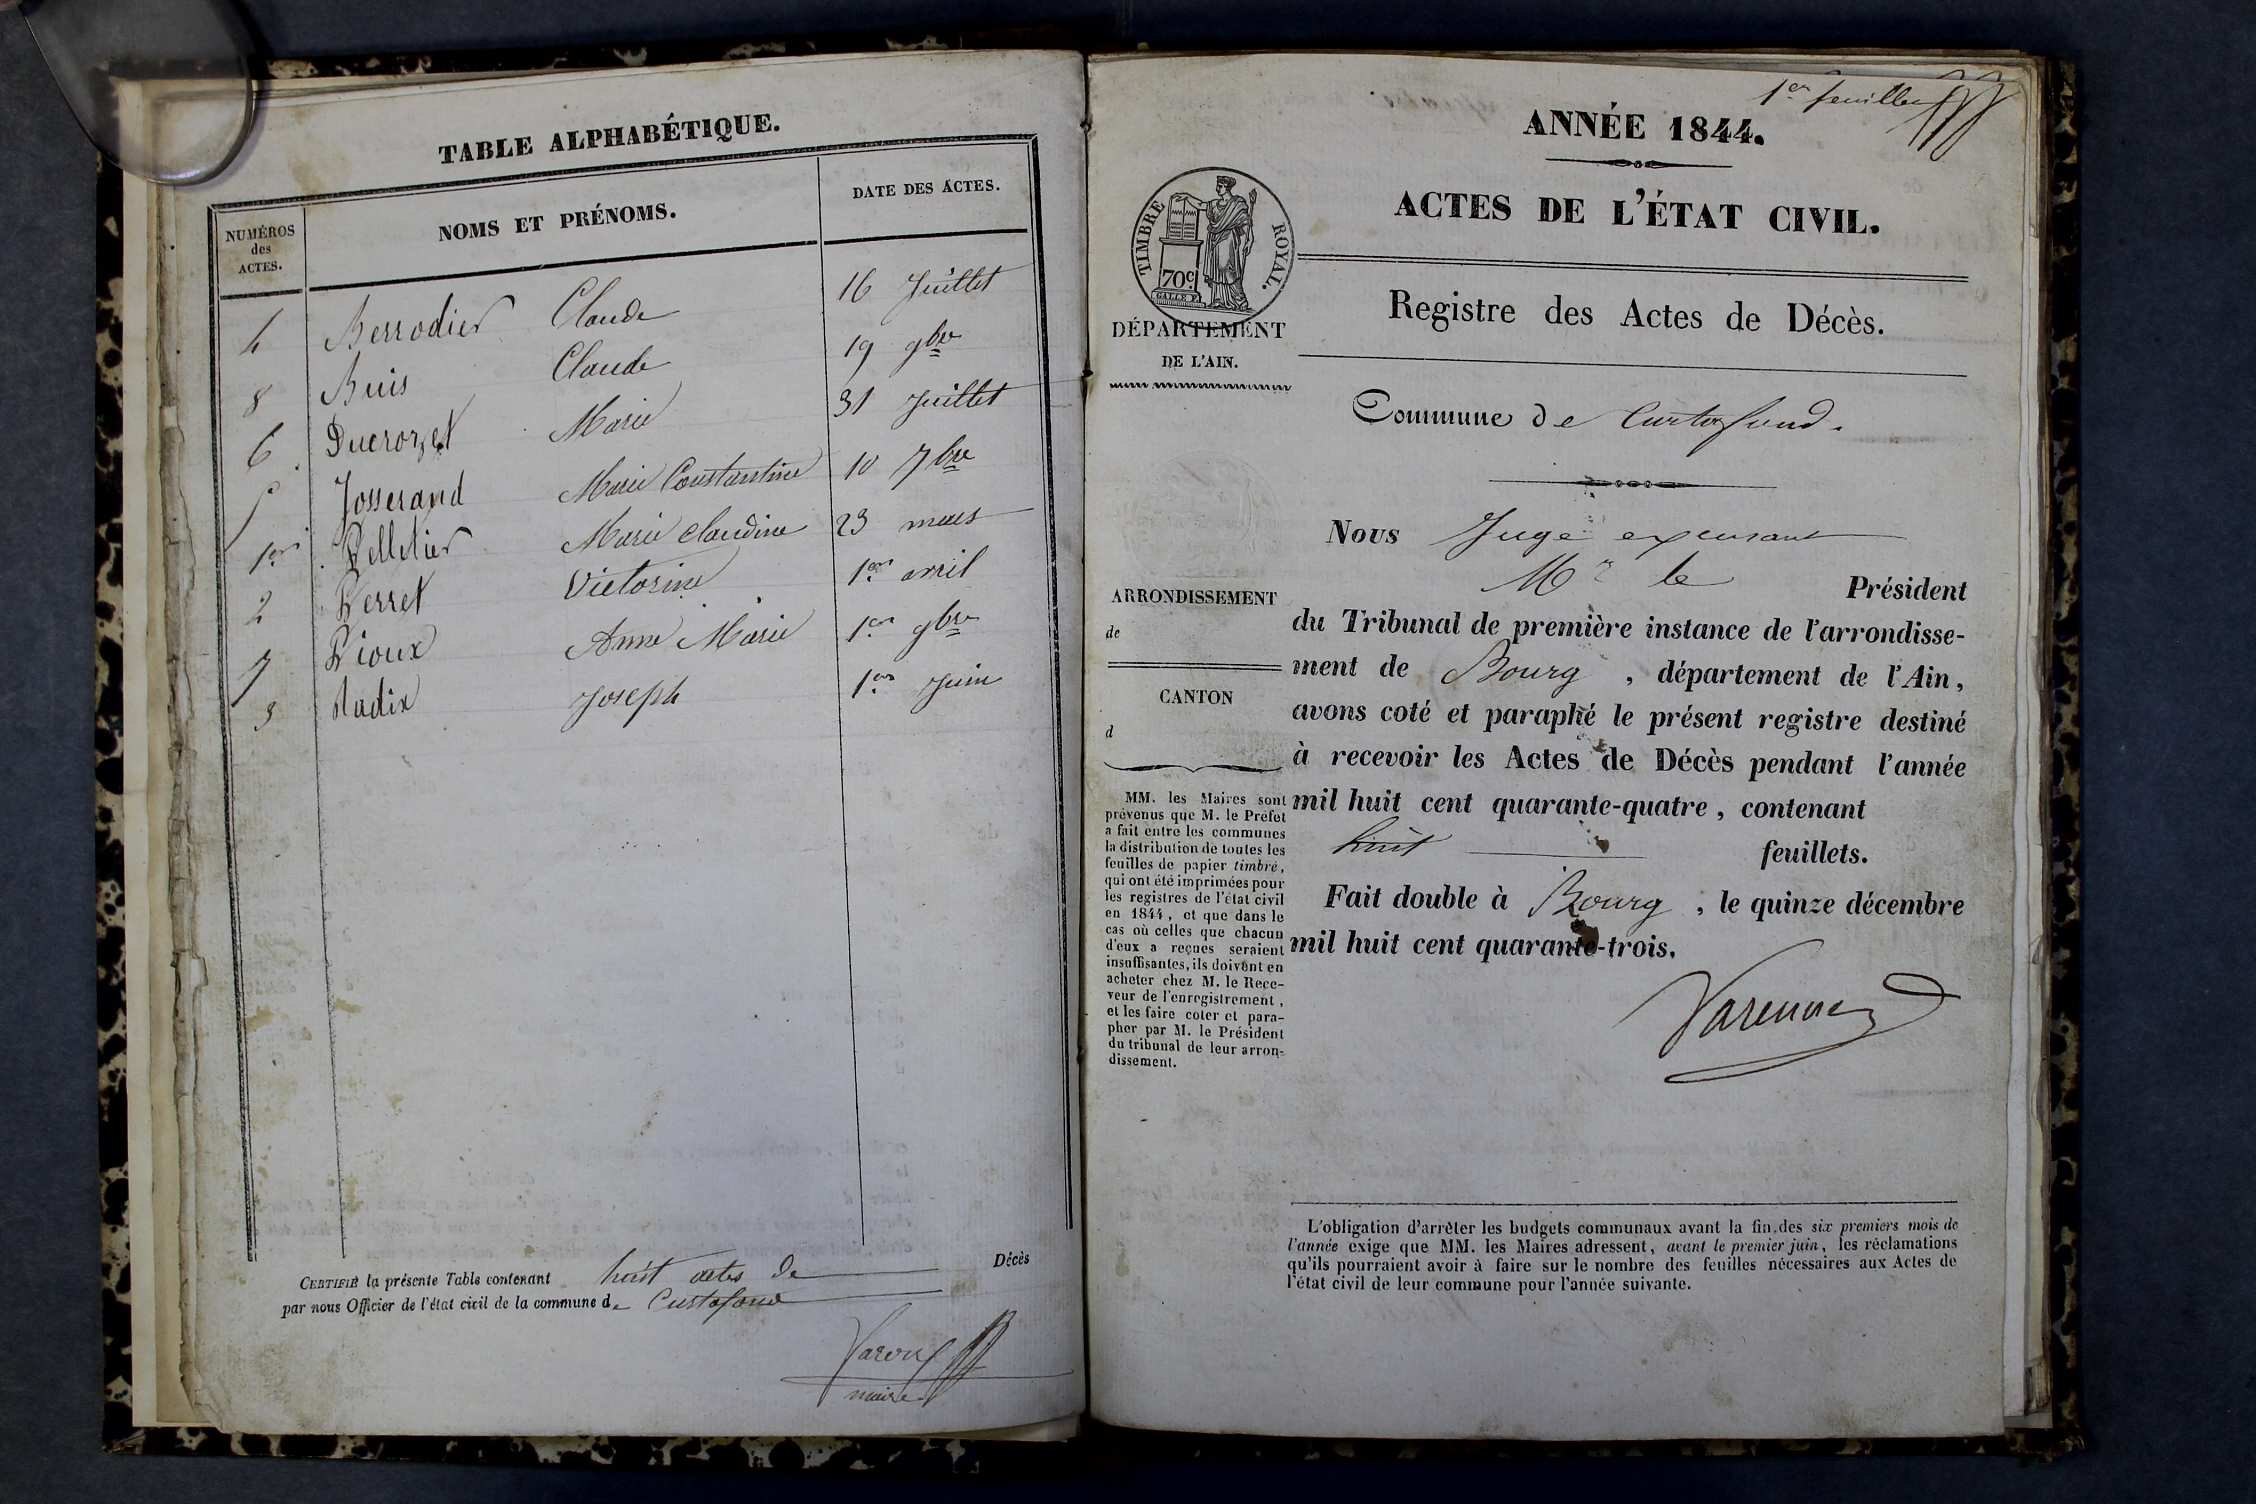 TABLE ALPHABÉTIQUE.
NUMÉROS
des
ACTES.
NOMS ET PRÉNOMS.
DATE DES ACTES.
4 Berrodier Claude 16 Juillet
8 Buis Claude 19 9bre
6 Ducrozet Marie 31 Juillet
5 Josserand Marie Constantine 10 7bre
1er Pelletier Marie Claudine 23 mars
2 Perret Victorine 1er avril
7 Pioux Anne Marie 1er 9bre
3 Radix Joseph 1er Juin
CERTIFIÉ la présente Table contenant huit actes de Décès
par nous Officier de l'état civil de la commune de Curtafond
maire
1er feuillet
ANNÉE 1844.
ACTES DE L'ÉTAT CIVIL.
TIMBRE ROYAL.
70c
Registre des Actes de Décès.
DÉPARTEMENT
DE L'AIN.
Commune de Curtafond.
Nous Juge
Mr le Président
ARRONDISSEMENT
de
CANTON
d
du Tribunal de première instance de l'arrondisse-
ment de Bourg, département de l'Ain,
avons coté et paraphé le présent registre destiné
à recevoir les Actes de Décès pendant l'année
mil huit cent quarante-quatre, contenant
huit feuillets.
Fait double à Bourg, le quinze décembre
mil huit cent quarante-trois.
Varenne
MM. les Maires sont
prévenus que M. le Préfet
a fait entre les communes
la distribution de toutes les
feuilles de papier timbré,
qui ont été imprimées pour
les registres de l'état civil
en 1844, et que dans le
cas où celles que chacun
d'eux a reçues seraient
insuffisantes, ils doivent en
acheter chez M. le Rece-
veur de l'enregistrement,
et les faire coter et para-
pher par M. le Président
du tribunal de leur arron-
dissement.
L'obligation d'arrêter les budgets communaux avant la fin des six premiers mois de
l'année exige que MM. les Maires adressent, avant le premier juin, les réclamations
qu'ils pourraient avoir à faire sur le nombre des feuilles nécessaires aux Actes de
l'état civil de leur commune pour l'année suivante.